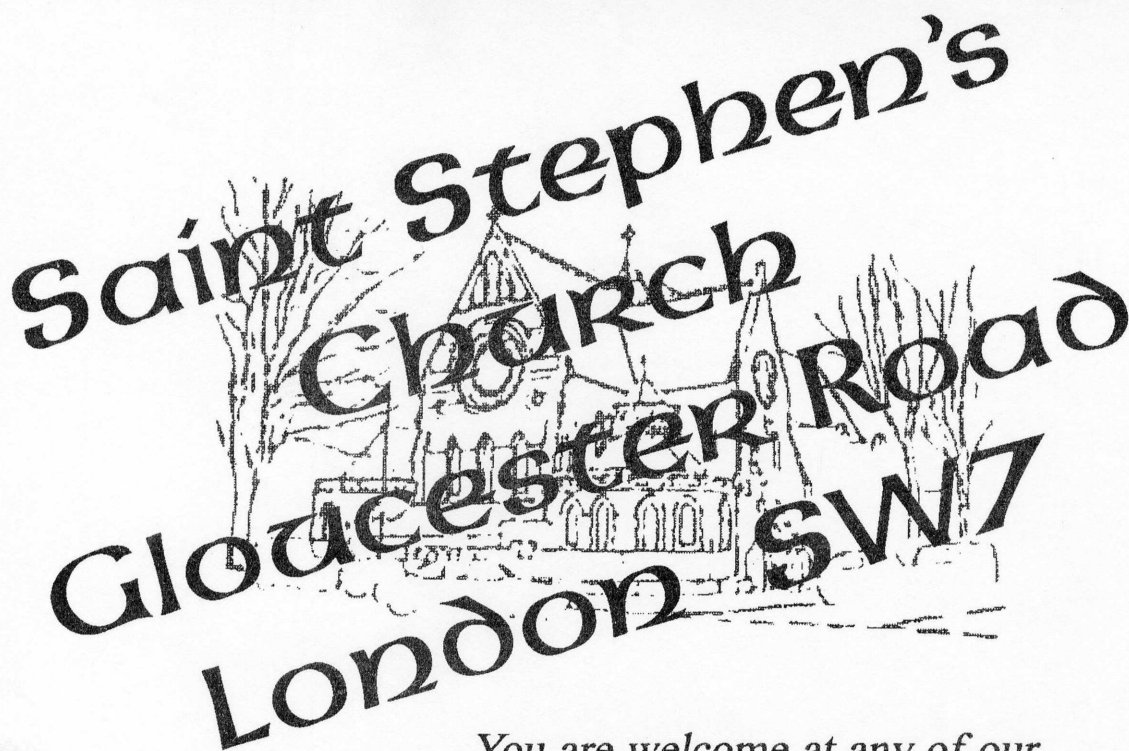 Saint Stephen's
Church
Gloucester Road
London SW7
You are welcome at any of our